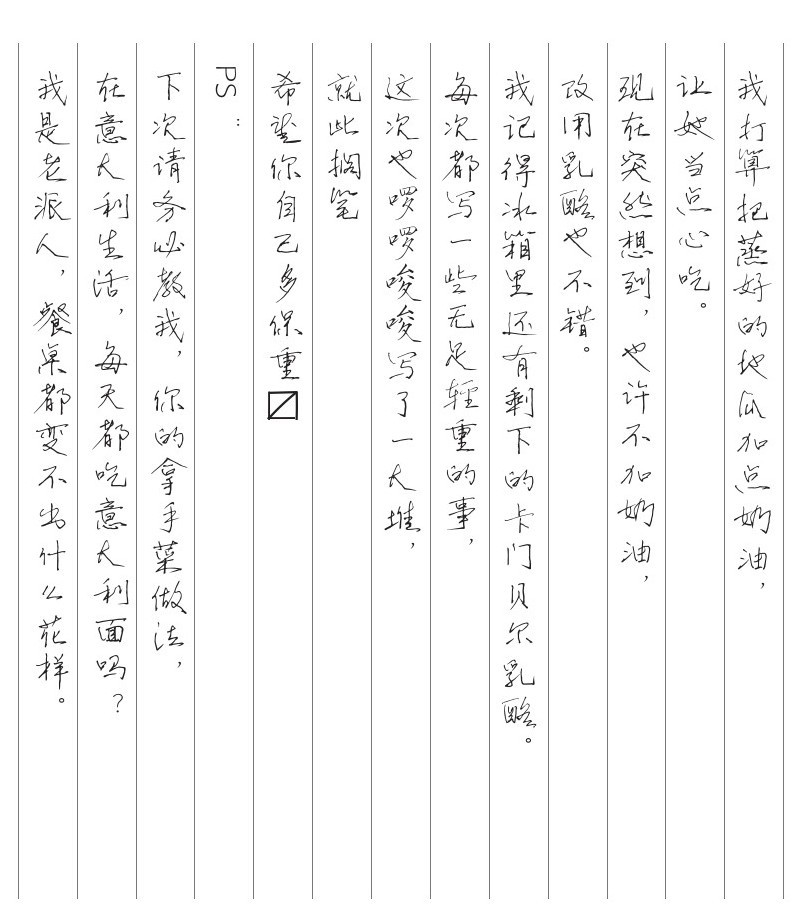 我打算把蒸好的地瓜加点奶油，
让她当点心吃。
现在突然想到，也许不加奶油，
改用乳酪也不错。
我记得冰箱里还有剩下的卡门贝尔乳酪。
每次都写一些无足轻重的事，
这次也啰啰唆唆写了一大堆，
就此搁笔
希望你自己多保重〼
PS：
下次请务必教我，你的拿手菜做法，
在意大利生活，每天都吃意大利面吗？
我是老派人，餐桌都变不出什么花样。